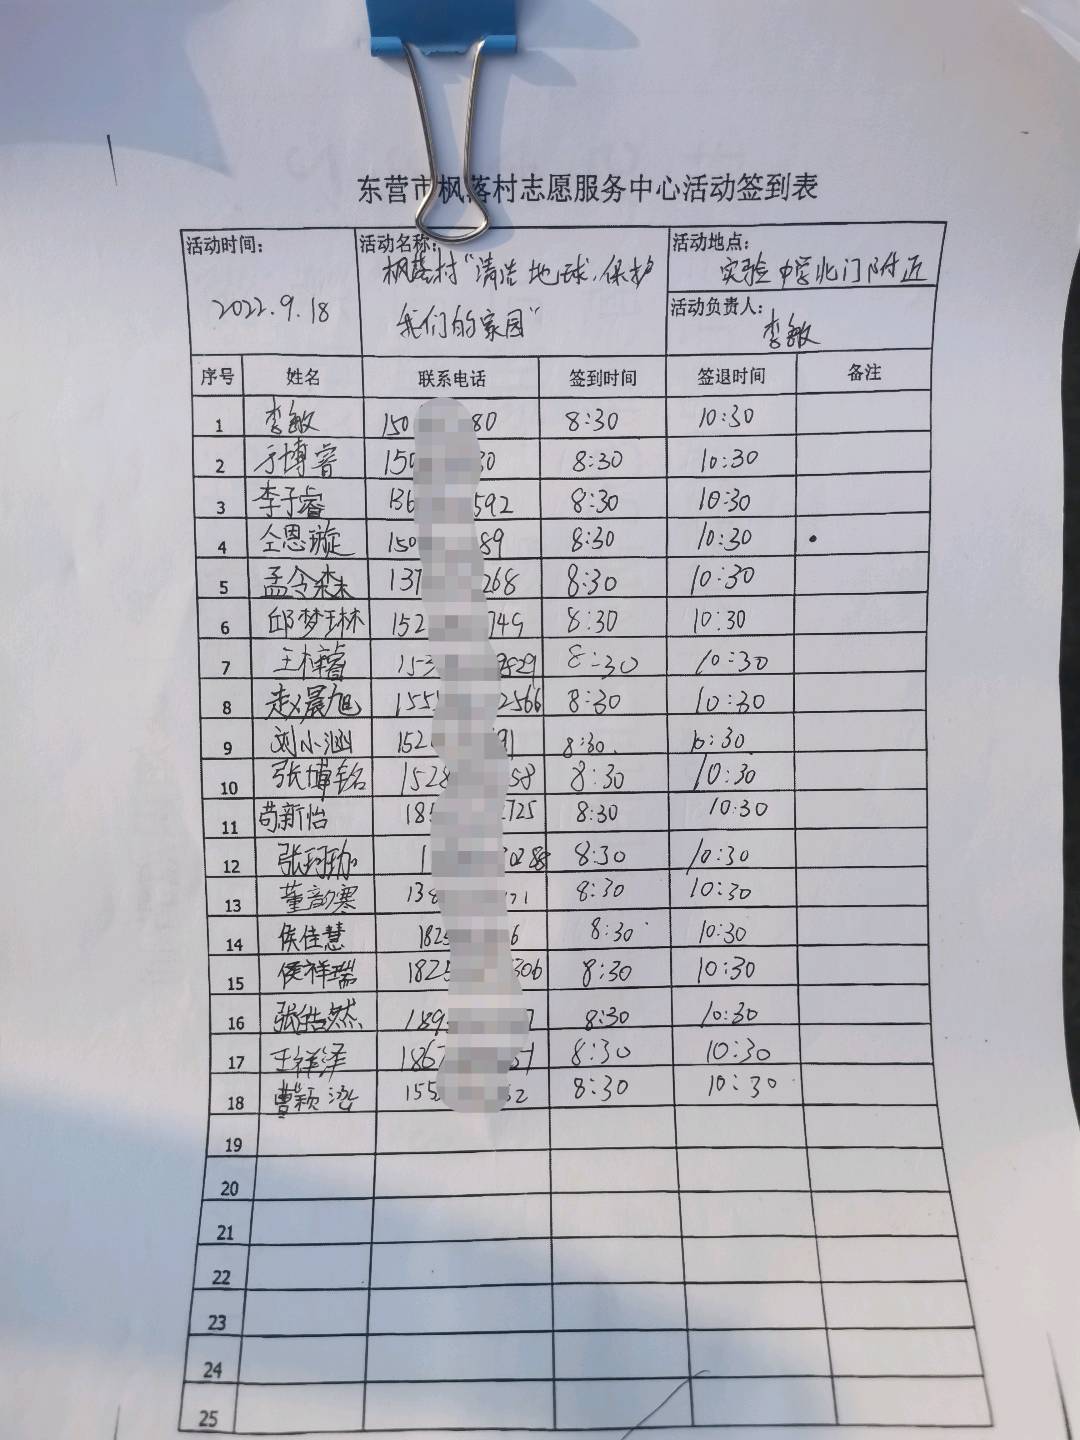 东营市枫落村志愿服务中心活动签到表
活动时间： 活动名称： 活动地点：
枫落村“清洁地球、保护 实验中学北门附近
2022.9.18 我们的家园” 活动负责人：
李敏
序号 姓名 联系电话 签到时间 签退时间 备注
1 李敏 150 80 8:30 10:30
2 于博睿 150 30 8:30 10:30
3 李子睿 136 592 8:30 10:30
4 仝恩璇 150 89 8:30 10:30
5 孟令森 137 268 8:30 10:30
6 邱梦琳 152 749 8:30 10:30
7 王梓睿 153 2829 8:30 10:30
8 赵晨旭 155 2566 8:30 10:30
9 刘小涵 152 91 8:30 10:30
10 张博铭 1528 58 8:30 10:30
11 苟新怡 185 2725 8:30 10:30
12 张珂珈 1 0288 8:30 10:30
13 董韵寒 138 71 8:30 10:30
14 侯佳慧 182 6 8:30 10:30
15 侯祥瑞 1825 306 8:30 10:30
16 张皓然 189 7 8:30 10:30
17 王祥泽 1867 51 8:30 10:30
18 曹颖 155 52 8:30 10:30
19
20
21
22
23
24
25